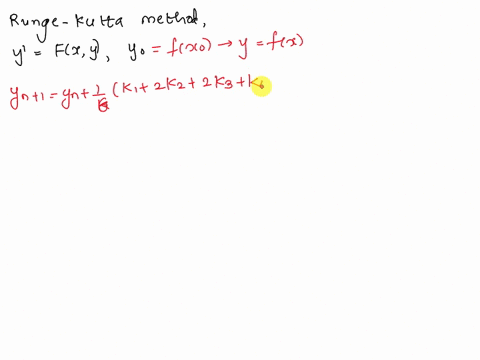 Runge-Kutta method,
y' = F(x, y), y₀ = f(x₀) → y = f(x)
yₙ₊₁ = yₙ + 1/6 (K₁ + 2K₂ + 2K₃ + K